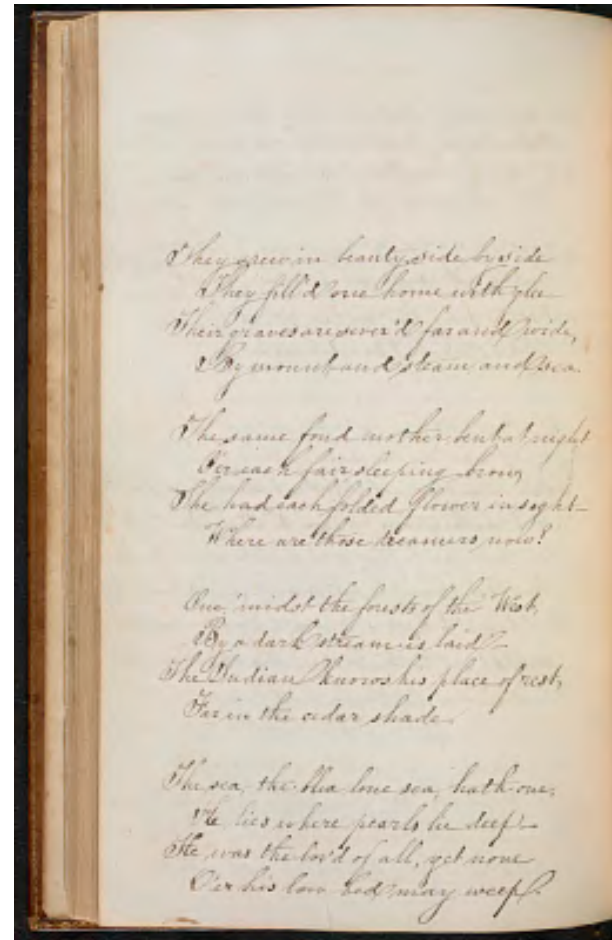 They grew in beauty side by side
They fill'd one home with glee
Their graves are sever'd far and wide,
By mount and steam and sea.
The same fond mother bent at night
O'er each fair sleeping brow,
She had each folded flower in sight—
Where are those dreamers now?
One, 'midst the forests of the West,
By a dark stream is laid—
The Indian knows his place of rest,
Far in the cedar shade.
The sea, the blue lone sea, hath one,
He lies where pearls lie deep—
He was the lov'd of all, yet none
O'er his low bed may weep.